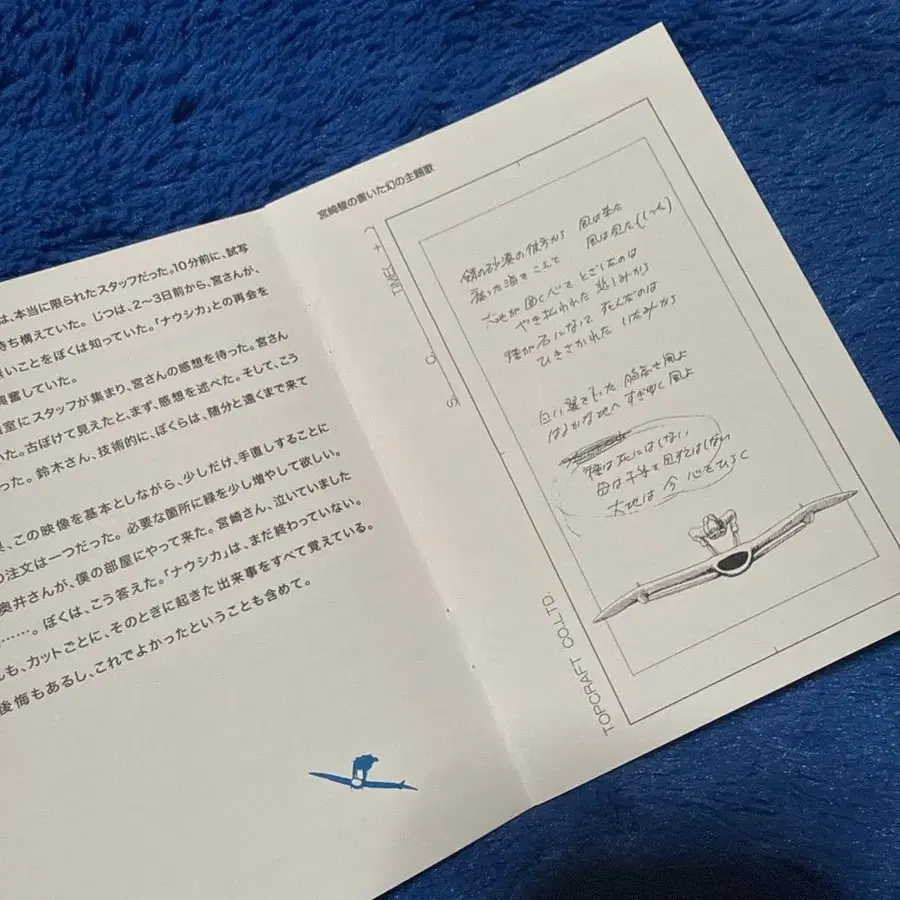 は、本当に限られたスタッフだった。10分前に、試写
ち構えていた。じつは、2〜3日前から、宮さんが、
いことをぼくは知っていた。「ナウシカ」との再会を
興奮していた。
室にスタッフが集まり、宮さんの感想を待った。宮さん
いた。古ぼけて見えたと、まず、感想を述べた。そして、こう
った。鈴木さん、技術的に、ぼくらは、随分と遠くまで来て
、この映像を基本としながら、少しだけ、手直しすることに
の注文は一つだった。必要な箇所に緑を少し増やして欲しい。
奥井さんが、僕の部屋にやって来た。宮崎さん、泣いていました
………。ぼくは、こう答えた。「ナウシカ」は、まだ終わっていない。
も、カットごとに、そのときに起きた出来事をすべて覚えている。
後悔もあるし、これでよかったということも含めて。
宮崎駿の書いた幻の主題歌
TIME
錆の砂漠の彼方から 風は来た
をこえて 風は見た
大地が固く心をとざしたのは
やき払われた悲しみから
種が石になって死んだのは
ひきさかれた いたみから
白い翼をもった 風よ
はるかな地へ すぎゆく風よ
種は死にはしない
大地は 今 心をひらく
TOPCRAFT CO.,LTD.